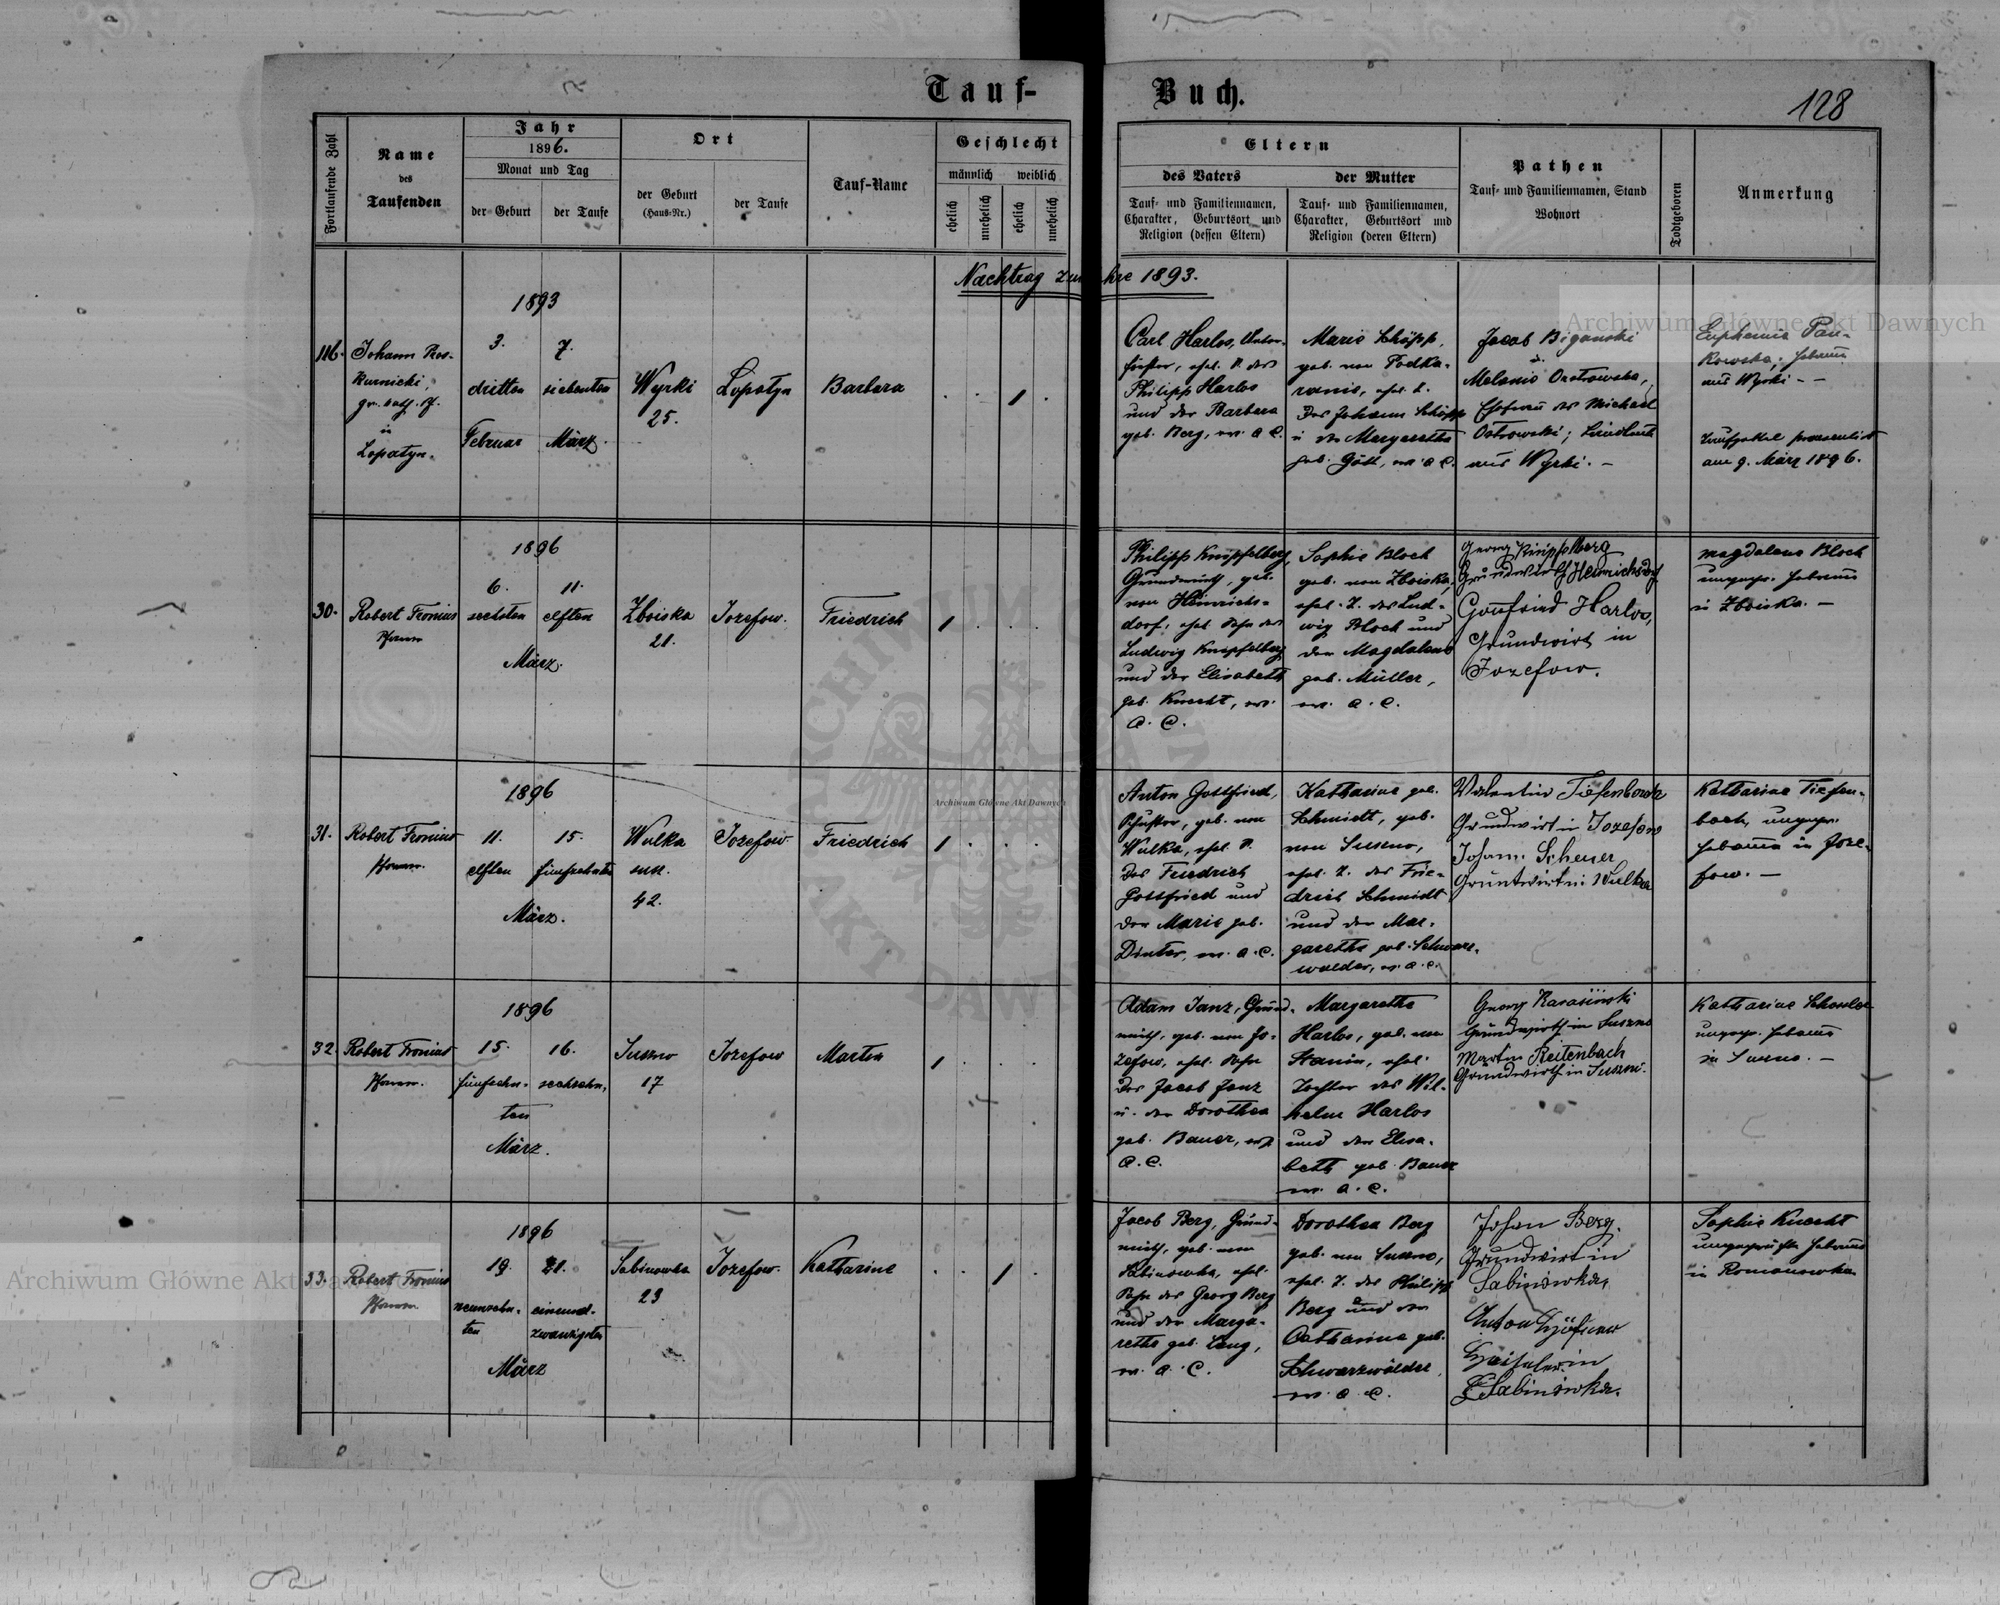 Tauf-Buch.
128
Fortlaufende Zahl
Name
des
Taufenden
Jahr
1896.
Monat und Tag
der Geburt
der Taufe
Ort
der Geburt
(Haus-Nr.)
der Taufe
Tauf-Name
Geschlecht
männlich
weiblich
ehelich
unehelich
ehelich
unehelich
Eltern
des Vaters
Tauf- und Familiennamen,
Charakter, Geburtsort und
Religion (dessen Eltern)
der Mutter
Tauf- und Familiennamen,
Charakter, Geburtsort und
Religion (deren Eltern)
Pathen
Tauf- und Familiennamen, Stand
Wohnort
Todtgeboren
Anmerkung
Nachtrag zum Jahre 1893.
116.
Johann Ros-
kurnicki,
gr. kath. Pf.
in
Lopatyn.
1893
3.
7.
dritten
siebenten
Februar
März.
Wyrki
25.
Lopatyn
Barbara
1
Carl Harlos, Unter-
förster, ehel. S. des
Philipp Harlos
und der Barbara
geb. Berg, ev. A. C.
Marie Schöpp,
geb. von Podka-
ranie, ehel. T.
des Johann Schöpp
u. der Margaretha
geb. Göttl, ev. A. C.
Jacob Biganski
u.
Melania Ostrowska,
Ehefrau des Michael
Ostrowski; Landleute
aus Wyrki. -
Euphemia Pan-
kowska, Hebamme
aus Wyrki - -
am 9. März 1896.
30.
Robert Fronius
Pfarrer
1896
6.
11.
sechsten
elften
März.
Zboiska
21.
Jozefow.
Friedrich
1
Philipp Knipfelberg,
Grundwirt, geb.
von Heinrichs-
dorf, ehel. Sohn des
Ludwig Knipfelberg
und der Elisabeth
geb. Knecht, ev.
A. C.
Sophie Bloch
geb. von Zboiska,
ehel. T. des Lud-
wig Bloch und
der Magdalena
geb. Müller,
ev. A. C.
Georg Knipfelberg
Grundwirth Heinrichsdorf
Gottfried Harlos,
Grundwirt in
Jozefow.
Magdalena Bloch
ungepr. Hebamme
in Zboiska. -
31.
Robert Fronius
Pfarrer.
1896
11.
15.
elften
fünfzehnten
März.
Wulka
susz.
42.
Jozefow.
Friedrich
1
Anton Gottfried,
Schuster, geb. von
Wulka, ehel. S.
des Friedrich
Gottfried und
der Marie geb.
Dinter, ev. A. C.
Katharine geb.
Schmidt, geb.
von Suszno,
ehel. T. des Frie-
drich Schmidt
und der Mar-
garetha geb. Schwarz-
walder, ev. A. C.
Valentin Tiefenbach
Grundwirt in Jozefow
Johann Scheuer
Grundwirt in Wulka
Katharina Tiefen-
bach, ungepr.
Hebamme in Joze-
fow. -
32.
Robert Fronius
Pfarrer.
1896
15.
16.
fünfzehn-
sechzehn,
ten
März.
Suszno
17
Jozefow
Martin
1
Adam Janz, Grund-
wirth, geb. von Jo-
zefow, ehel. Sohn
des Jacob Janz
u. der Dorothea
geb. Bauer, ev.
A. C.
Margaretha
Harlos, geb. von
Stanin, ehel.
Tochter des Wil-
helm Harlos
und der Elisa-
beth geb. Bauer
ev. A. C.
Georg Karasinski
Grundwirth in Suszno
Martin Reitenbach
Grundwirth in Suszno.
Katharina
ungepr. Hebamme
in Suszno. -
33.
Robert Fronius
Pfarrer
1896
19.
21.
neunzehn-
einund-
ten
zwanzigsten
März
Sabinowka
23
Jozefow.
Katharine
1
Jacob Berg, Grund-
wirth, geb. von
Sabinowka, ehel.
Sohn des Georg Berg
und der Marga-
retha geb. Lang,
ev. A. C.
Dorothea Berg
geb. von Suszno,
ehel. T. des Philipp
Berg und der
Catharina geb.
Schwarzwälder,
ev. A. C.
Johan Berg.
Grundwirt in
Sabinowka,
Anton
in
Sabinowka.
Sophie Knecht
ungeprüfte Hebamme
in Romanowka
Archiwum Główne Akt Dawnych
Archiwum Główne Akt Dawnych
Archiwum Główne Akt Dawnych
ARCHIWUM
AKT DAWNYCH